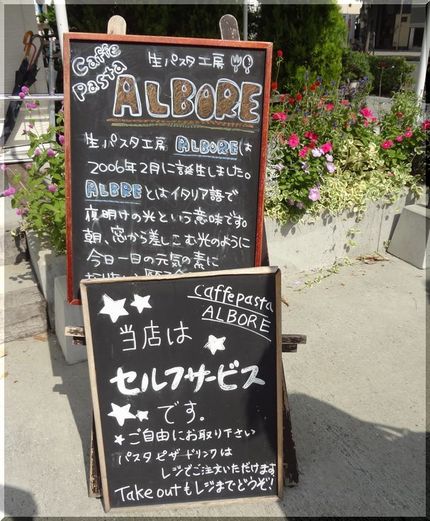 Caffe
Pasta
生パスタ工房
ALBORE
生パスタ工房 ALBOREは
2006年2月に誕生しました。
ALBREとはイタリア語で
夜明けの光という意味です。
朝、窓から差しこむ光のように
今日一日の元気の素に
caffepasta
ALBORE
当店は
セルフサービス
です。
★ご自由にお取り下さい
パスタ ピザ ドリンクは
レジでご注文いただけます
Take outもレジまでどうぞ!